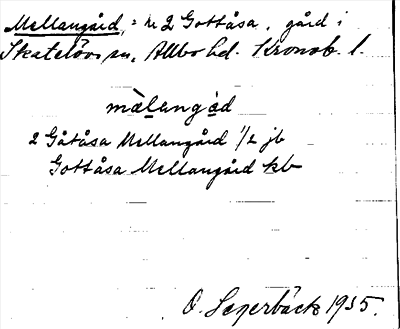 Mellangård, = nr 2 Gottåsa, gård i
Skatelövs sn, Allbo hd. Kronob. l.
mälangåd
2 Gåtåsa Mellangård 1/2 jb
Gottåsa Mellangård kb
O. Segerbäck 1935.